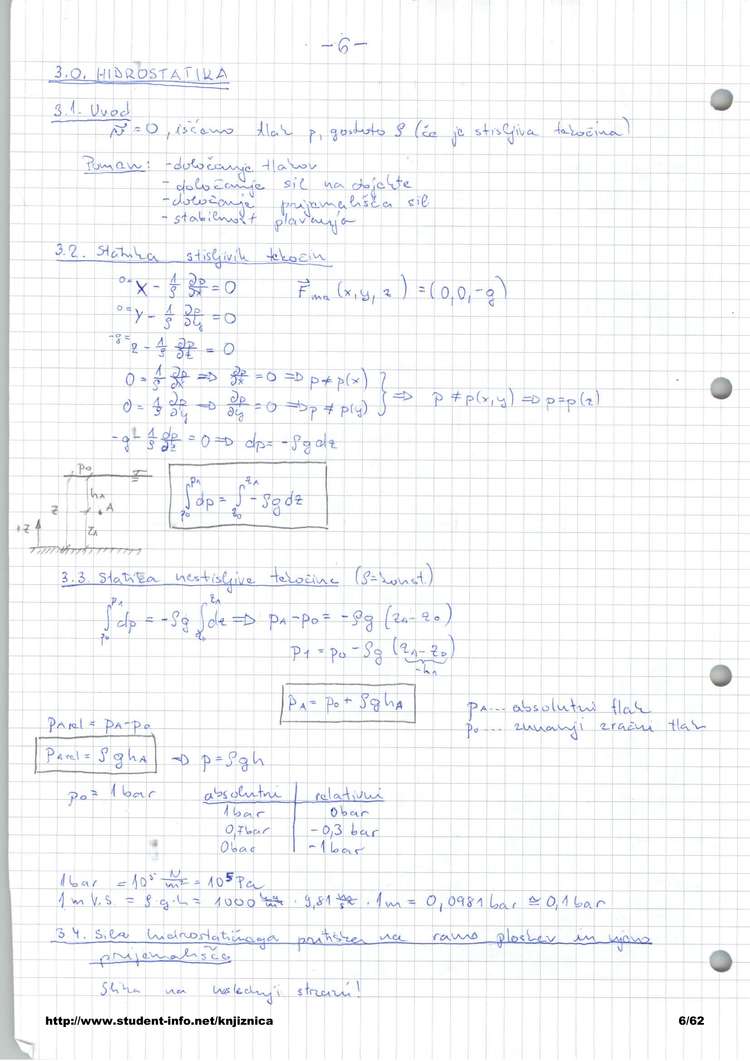 -6-
3.0. HIDROSTATIKA
3.1. Uvod
v⃗ = 0, iščemo tlak p, gostoto ρ (če je stisljiva tekočina)
Pomen: - določanje tlakov
- določanje sil na objekte
- določanje prijemališča sil
- stabilnost plavanja
3.2. Statika stisljivih tekočin
0= X - 1/ρ ∂p/∂x = 0 F⃗ma (x, y, z) = (0, 0, -g)
0= Y - 1/ρ ∂p/∂y = 0
-g= z - 1/ρ ∂p/∂z = 0
0 = 1/ρ ∂p/∂x => ∂p/∂x = 0 => p ≠ p(x)
0 = 1/ρ ∂p/∂y => ∂p/∂y = 0 => p ≠ p(y) } => p ≠ p(x,y) => p = p(z)
-g - 1/ρ dp/dz = 0 => dp = -ρg dz
p0
hA
z A
+z zA
∫p0^pA dp = ∫z0^zA -ρg dz
3.3. Statika nestisljive tekočine (ρ=konst.)
∫p0^pA dp = -ρg ∫z0^zA dz => pA - p0 = -ρg (zA - z0)
p1 = p0 - ρg (zA - z0)
-hA
pA = p0 + ρghA
pA... absolutni tlak
p0... zunanji zračni tlak
pArel = pA - p0
pArel = ρghA => p = ρgh
p0 = 1 bar absolutni relativni
1 bar 0 bar
0,7 bar -0,3 bar
0 bar -1 bar
1 bar = 10^5 N/m² = 10^5 Pa
1 m V.S. = ρ·g·h = 1000 · 9,81 · 1m = 0,0981 bar ≅ 0,1 bar
3.4. Sila hidrostatičnega pritiska na ravno ploskev in njeno
prijemališče
Slika na naslednji strani!
http://www.student-info.net/knjiznica 6/62